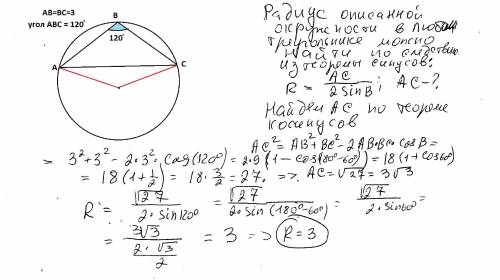 AB=BC=3
угол ABC = 120°
B
120°
A
C
Радиус описанной
окружности в любом
треугольнике можно
найти по следствию
из теоремы синусов:
R = AC / 2 sin B ; AC-?
Найдем AC по теореме
косинусов
AC² = AB² + BC² - 2AB·BC·cos B =
= 3² + 3² - 2·3²·cos(120°) = 2·9(1 - cos(180°-60°)) = 18(1+cos60°)
= 18(1 + 1/2) = 18·3/2 = 27. => AC = √27 = 3√3
R = √27 / 2·sin120° = √27 / 2·sin(180°-60°) = √27 / 2·sin60° =
= 3√3 / (2·√3 / 2) = 3 => R = 3